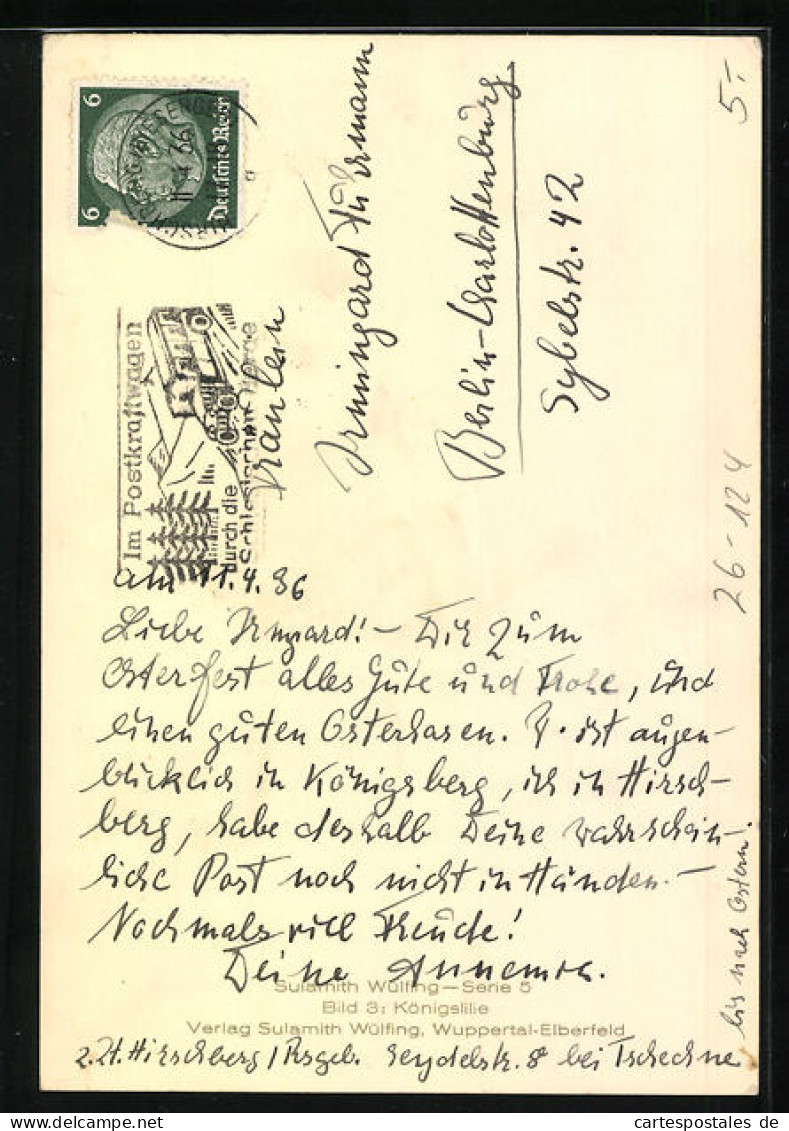 6 6
Deutsches Reich
Im Postkraftwagen
durch die
Schlesischen Berge
Fräulein
Irmingard Fuhrmann
Berlin-Charlottenburg
Sybelstr. 42
5.-
26-124
am 11.4.36
Liebe Irmgard! - Dir zum
Osterfest alles Gute und Frohe, und
einen guten Osterhasen. F. ist augen-
blicklich in Königsberg, ich in Hirsch-
berg, habe deshalb Deine wahrschein-
liche Post noch nicht in Händen. -
Nochmals viel Freude!
Deine
Sulamith Wülfing—Serie 5
Bild 3: Königslilie
Verlag Sulamith Wülfing, Wuppertal-Elberfeld
z. Zt. Hirschberg / Rsgeb. Seydelstr. 8 bei Tschechne
bis nach Ostern.
www.cartespostales.de